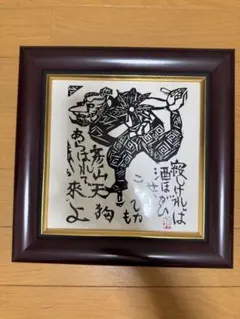 寂しければ
酒ほがひ
せむ
こよひ
かも
彦山天狗
あらはれて
來よ